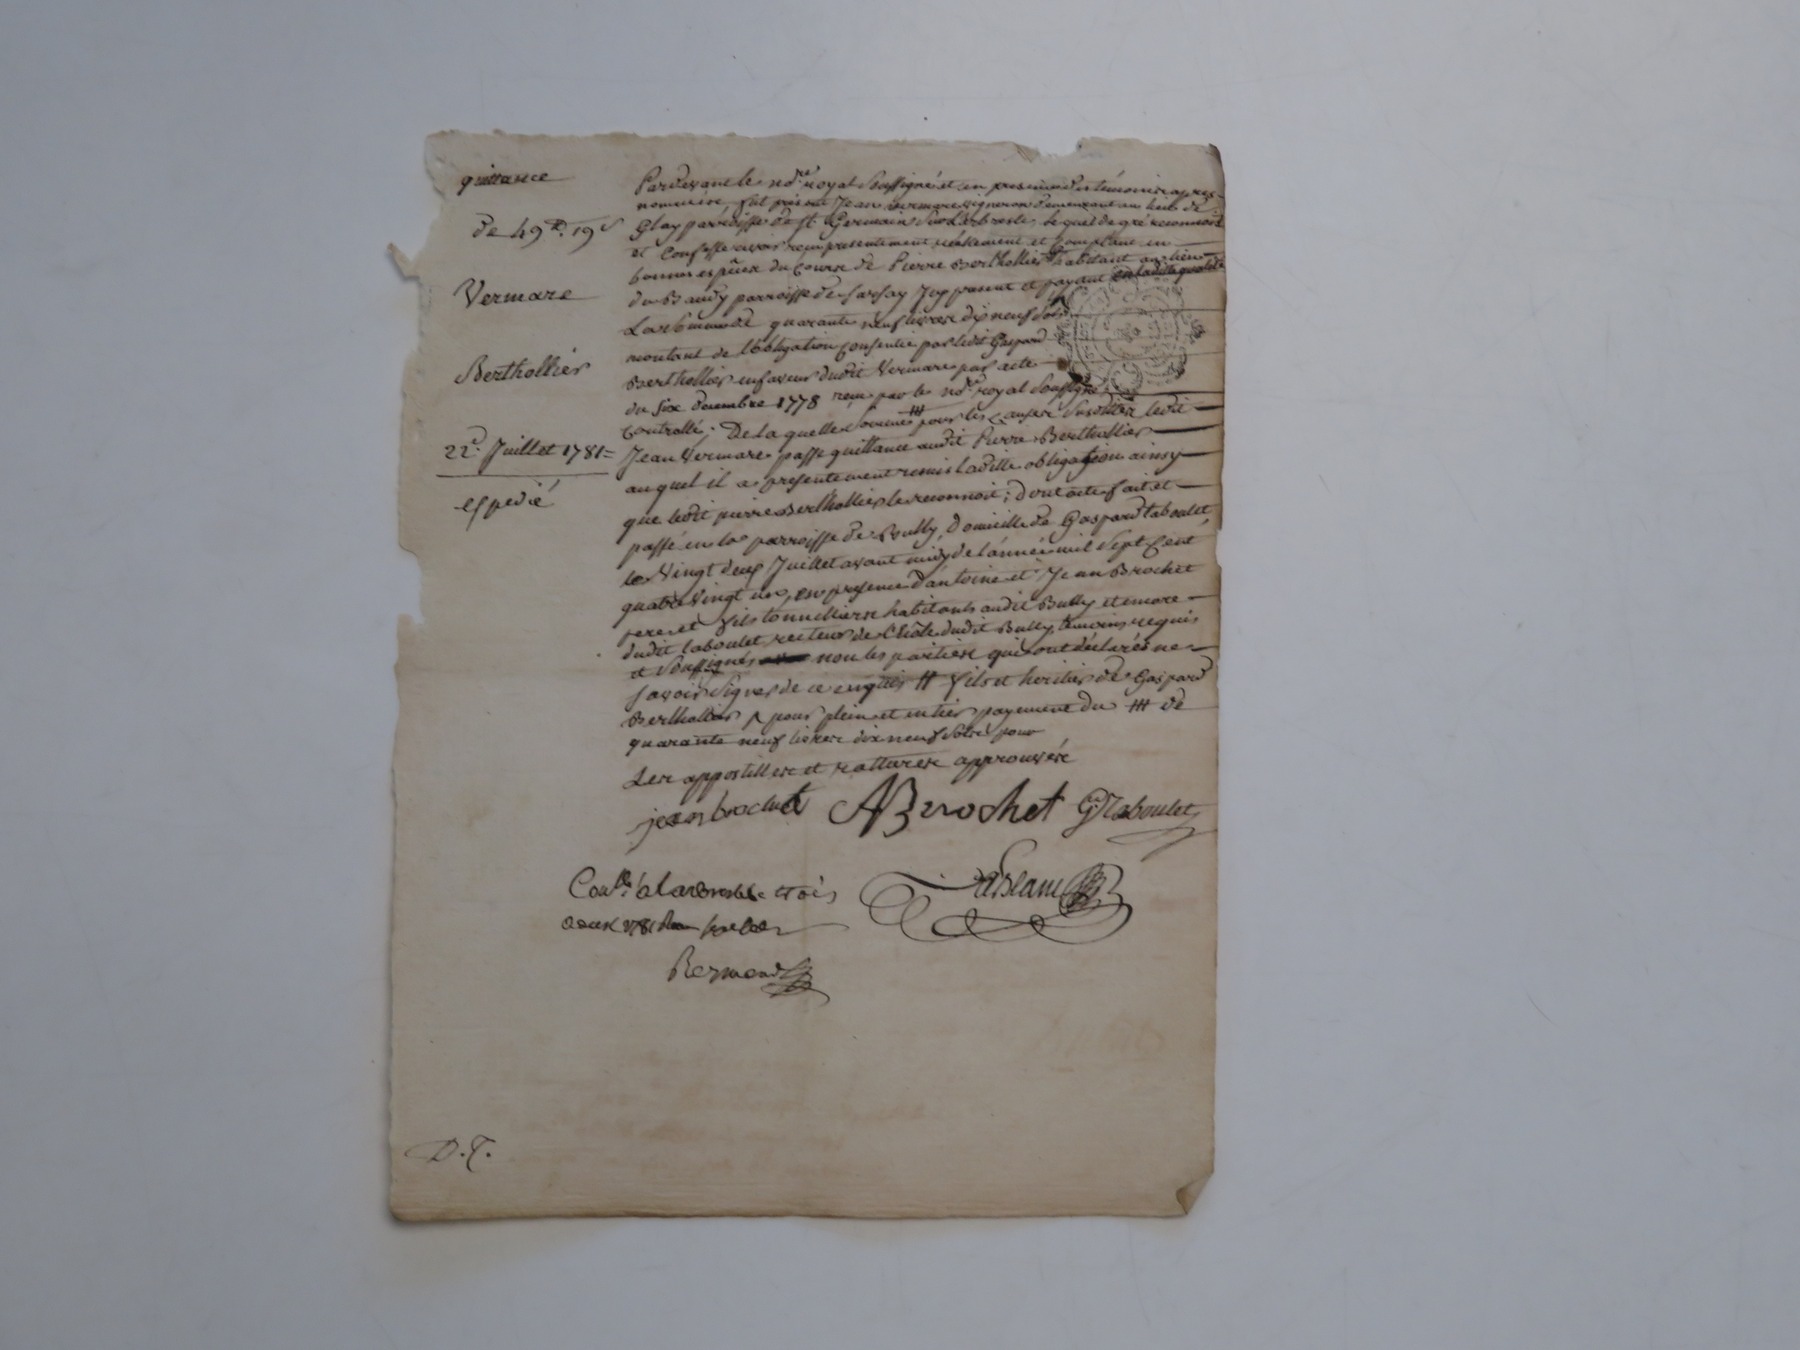 quittance
de 49 lt. 19 s
Vermare
Berthollier
22e. Juillet 1781 =
expedié
Pardevant le nore. royal soussigné et en presence des témoins apres
nommés, fut présent Jean Vermare vigneron demeurant au lieu de
Glay parroisse de St. Germain sur Larbresle, lequel de gré reconnoit
et confesse avoir reçu presentement réélement et comptant en
bonnes espèces du cours de Pierre Berthollier # habitant au lieu
du Baudy parroisse de Sarsay icy present et payant en ladite qualité
La somme de quarante neuf livres dix neuf sols
montant de l'obligation consentie par ledit Gaspard
Berthollier en faveur dudit Vermare par acte
du six decembre 1778 reçu par le nore. royal soussigné
controllé; De laquelle somme pour les causes susdites ledit
Jean Vermare passe quittance audit Pierre Berthollier
auquel il a présentement remis ladite obligation ainsy
que ledit pierre Berthollier le reconnoit; dont acte fait et
passé en la parroisse de Bully, domicille de Gaspard taboulet,
le vingt deux Juillet avant midy de l'année mil sept cent
quatre vingt un, en presence d'antoine et Jean Brochet
pere et fils tonnelliers habitants audit Bully et encore
dudit taboulet recteur de l'école dudit Bully, temoins requis
et soussignés non les parties qui ont déclarés ne
savoir signer de ce enquis # fils et heritier de Gaspard
Berthollier pour plein et entier payement du ### de
quarante neuf livres dix neuf sols pour
Les appostilles et ratures approuvés
jean brochet ABrochet G. Taboulet
Conlé. a Larbresle le trois
aoust 1781
Reymond
D.T.